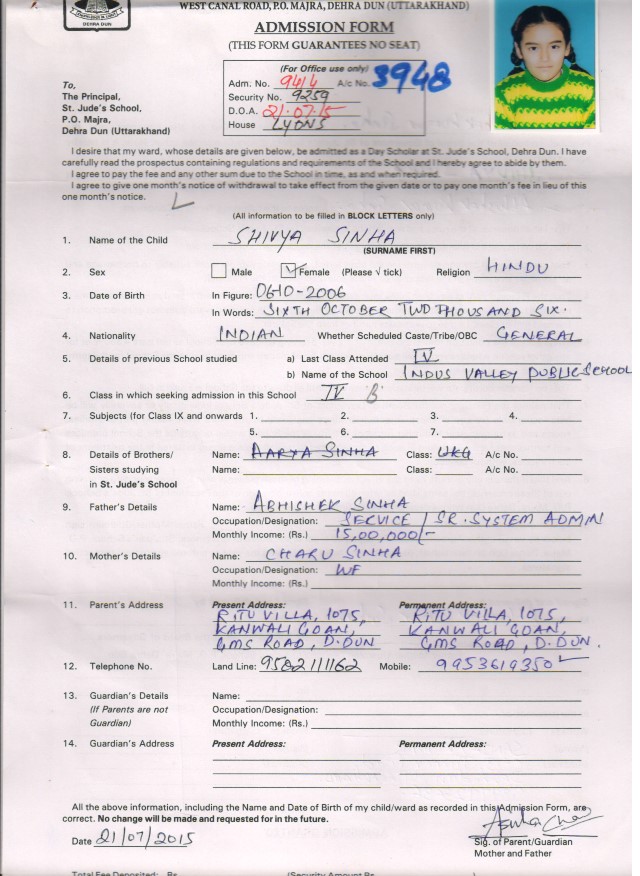 DEHRA DUN
WEST CANAL ROAD, P.O. MAJRA, DEHRA DUN (UTTARAKHAND)
ADMISSION FORM
(THIS FORM GUARANTEES NO SEAT)
(For Office use only)
Adm. No. 9414 A/c No. 3948
Security No. 9259
D.O.A. 21·07·15
House LYONS
To,
The Principal,
St. Jude's School,
P.O. Majra,
Dehra Dun (Uttarakhand)
I desire that my ward, whose details are given below, be admitted as a Day Scholar at St. Jude's School, Dehra Dun. I have
carefully read the prospectus containing regulations and requirements of the School and I hereby agree to abide by them.
I agree to pay the fee and any other sum due to the School in time, as and when required.
I agree to give one month's notice of withdrawal to take effect from the given date or to pay one month's fee in lieu of this
one month's notice.
(All information to be filled in BLOCK LETTERS only)
1. Name of the Child SHIVYA SINHA
(SURNAME FIRST)
2. Sex Male Female (Please √ tick) Religion HINDU
3. Date of Birth In Figure: 0610-2006
In Words: SIXTH OCTOBER TWO THOUSAND SIX.
4. Nationality INDIAN Whether Scheduled Caste/Tribe/OBC GENERAL
5. Details of previous School studied a) Last Class Attended IV
b) Name of the School INDUS VALLEY PUBLIC SCHOOL
6. Class in which seeking admission in this School IV B
7. Subjects (for Class IX and onwards 1. 2. 3. 4.
5. 6. 7.
8. Details of Brothers/ Name: AARYA SINHA Class: UKG A/c No.
Sisters studying Name: Class: A/c No.
in St. Jude's School
9. Father's Details Name: ABHISHEK SINHA
Occupation/Designation: SERVICE / SR. SYSTEM ADMIN
Monthly Income: (Rs.) 15,00,000/-
10. Mother's Details Name: CHARU SINHA
Occupation/Designation: WF
Monthly Income: (Rs.)
11. Parent's Address Present Address: Permanent Address:
RITU VILLA, 1075, RITU VILLA, 1075,
KANWALI GOAN, KANWALI GOAN,
GMS ROAD, D.DUN GMS ROAD, D.DUN.
12. Telephone No. Land Line: 9502111162 Mobile: 9953619350
13. Guardian's Details Name:
(If Parents are not Occupation/Designation:
Guardian) Monthly Income: (Rs.)
14. Guardian's Address Present Address: Permanent Address:
All the above information, including the Name and Date of Birth of my child/ward as recorded in this Admission Form, are
correct. No change will be made and requested for in the future.
Date 21/07/2015
Sig. of Parent/Guardian
Mother and Father
Total Fee Deposited: Rs. (Security Amount Rs.